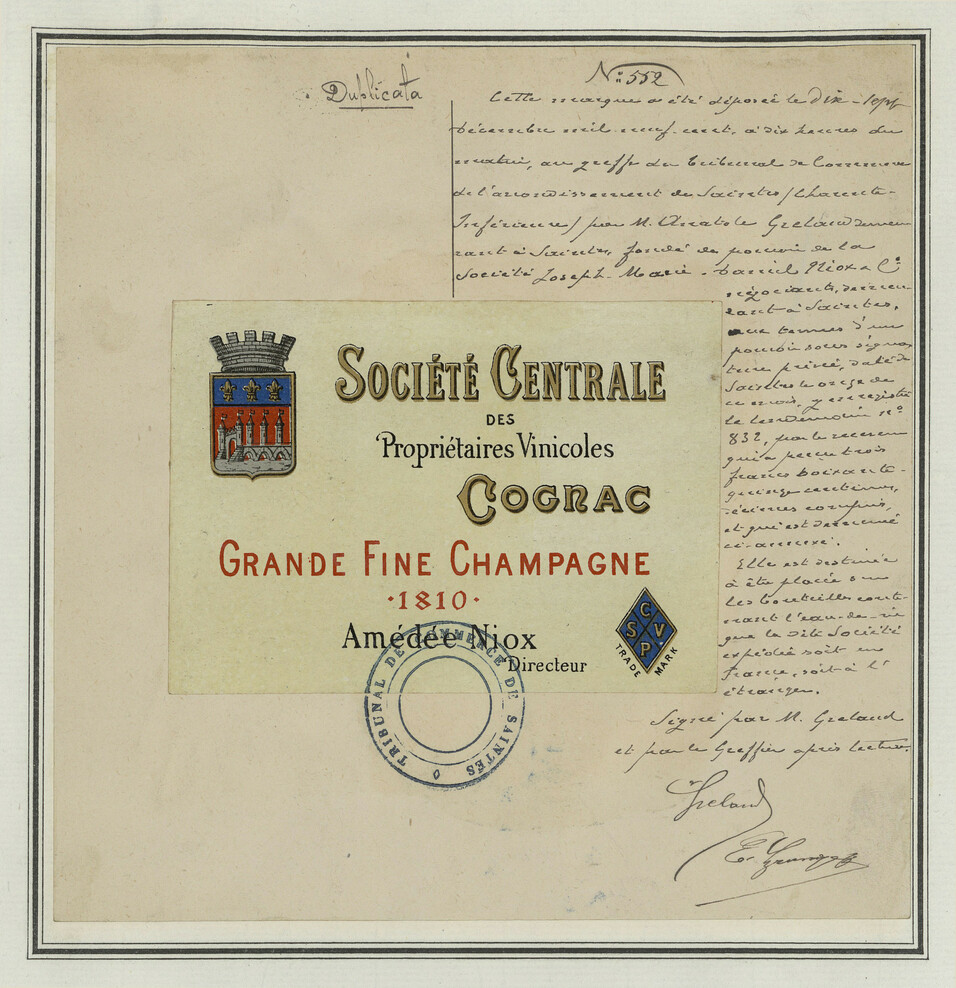 Duplicata
N° 552
Cette marque a été déposée le Dix-sept
Décembre mil neuf cent, à dix heures du
matin, au greffe du Tribunal de Commerce
de l'arrondissement de Saintes (Charente-
Inférieure) par M. Anatole Grelaud demeu
rant à Saintes, fondé de pouvoir de la
Société Joseph-Marie-Daniel Niox & Cie
négociants, demeu
rant à Saintes,
aux termes d'un
pouvoir sous signa
ture privé, daté de
Saintes le onze de
ce mois, y enregistré
le lendemain n°
832, par le receveur
qui a perçu trois
francs soixante-
quinze centimes,
décimes compris,
et qui est demeuré
ci-annexé.
Elle est destinée
à être placée sur
les bouteilles conte-
nant l'eau-de-vie
que la dite Société
expédie soit en
France, soit à l'
étranger.
Signé par M. Grelaud
et par le Greffier après lecture.
Grelaud
SOCIÉTÉ CENTRALE
DES
Propriétaires Vinicoles
COGNAC
GRANDE FINE CHAMPAGNE
·1810·
Amédée Niox
Directeur
C
S V
P
TRADE MARK
TRIBUNAL DE COMMERCE DE SAINTES